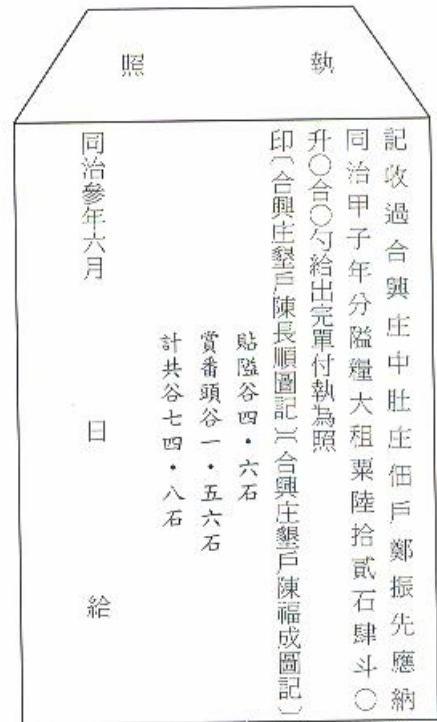 執照
記收過合興庄中肚庄佃戶鄭振先應納
同治甲子年分隘糧大租粟陸拾貳石肆斗〇
升〇合〇勺給出完單付執為照
印〔合興庄墾戶陳長順圖記〕〔合興庄墾戶陳福成圖記〕
貼隘谷四・六石
賞番頭谷一・五六石
計共谷七四・八石
同治參年六月 日 給